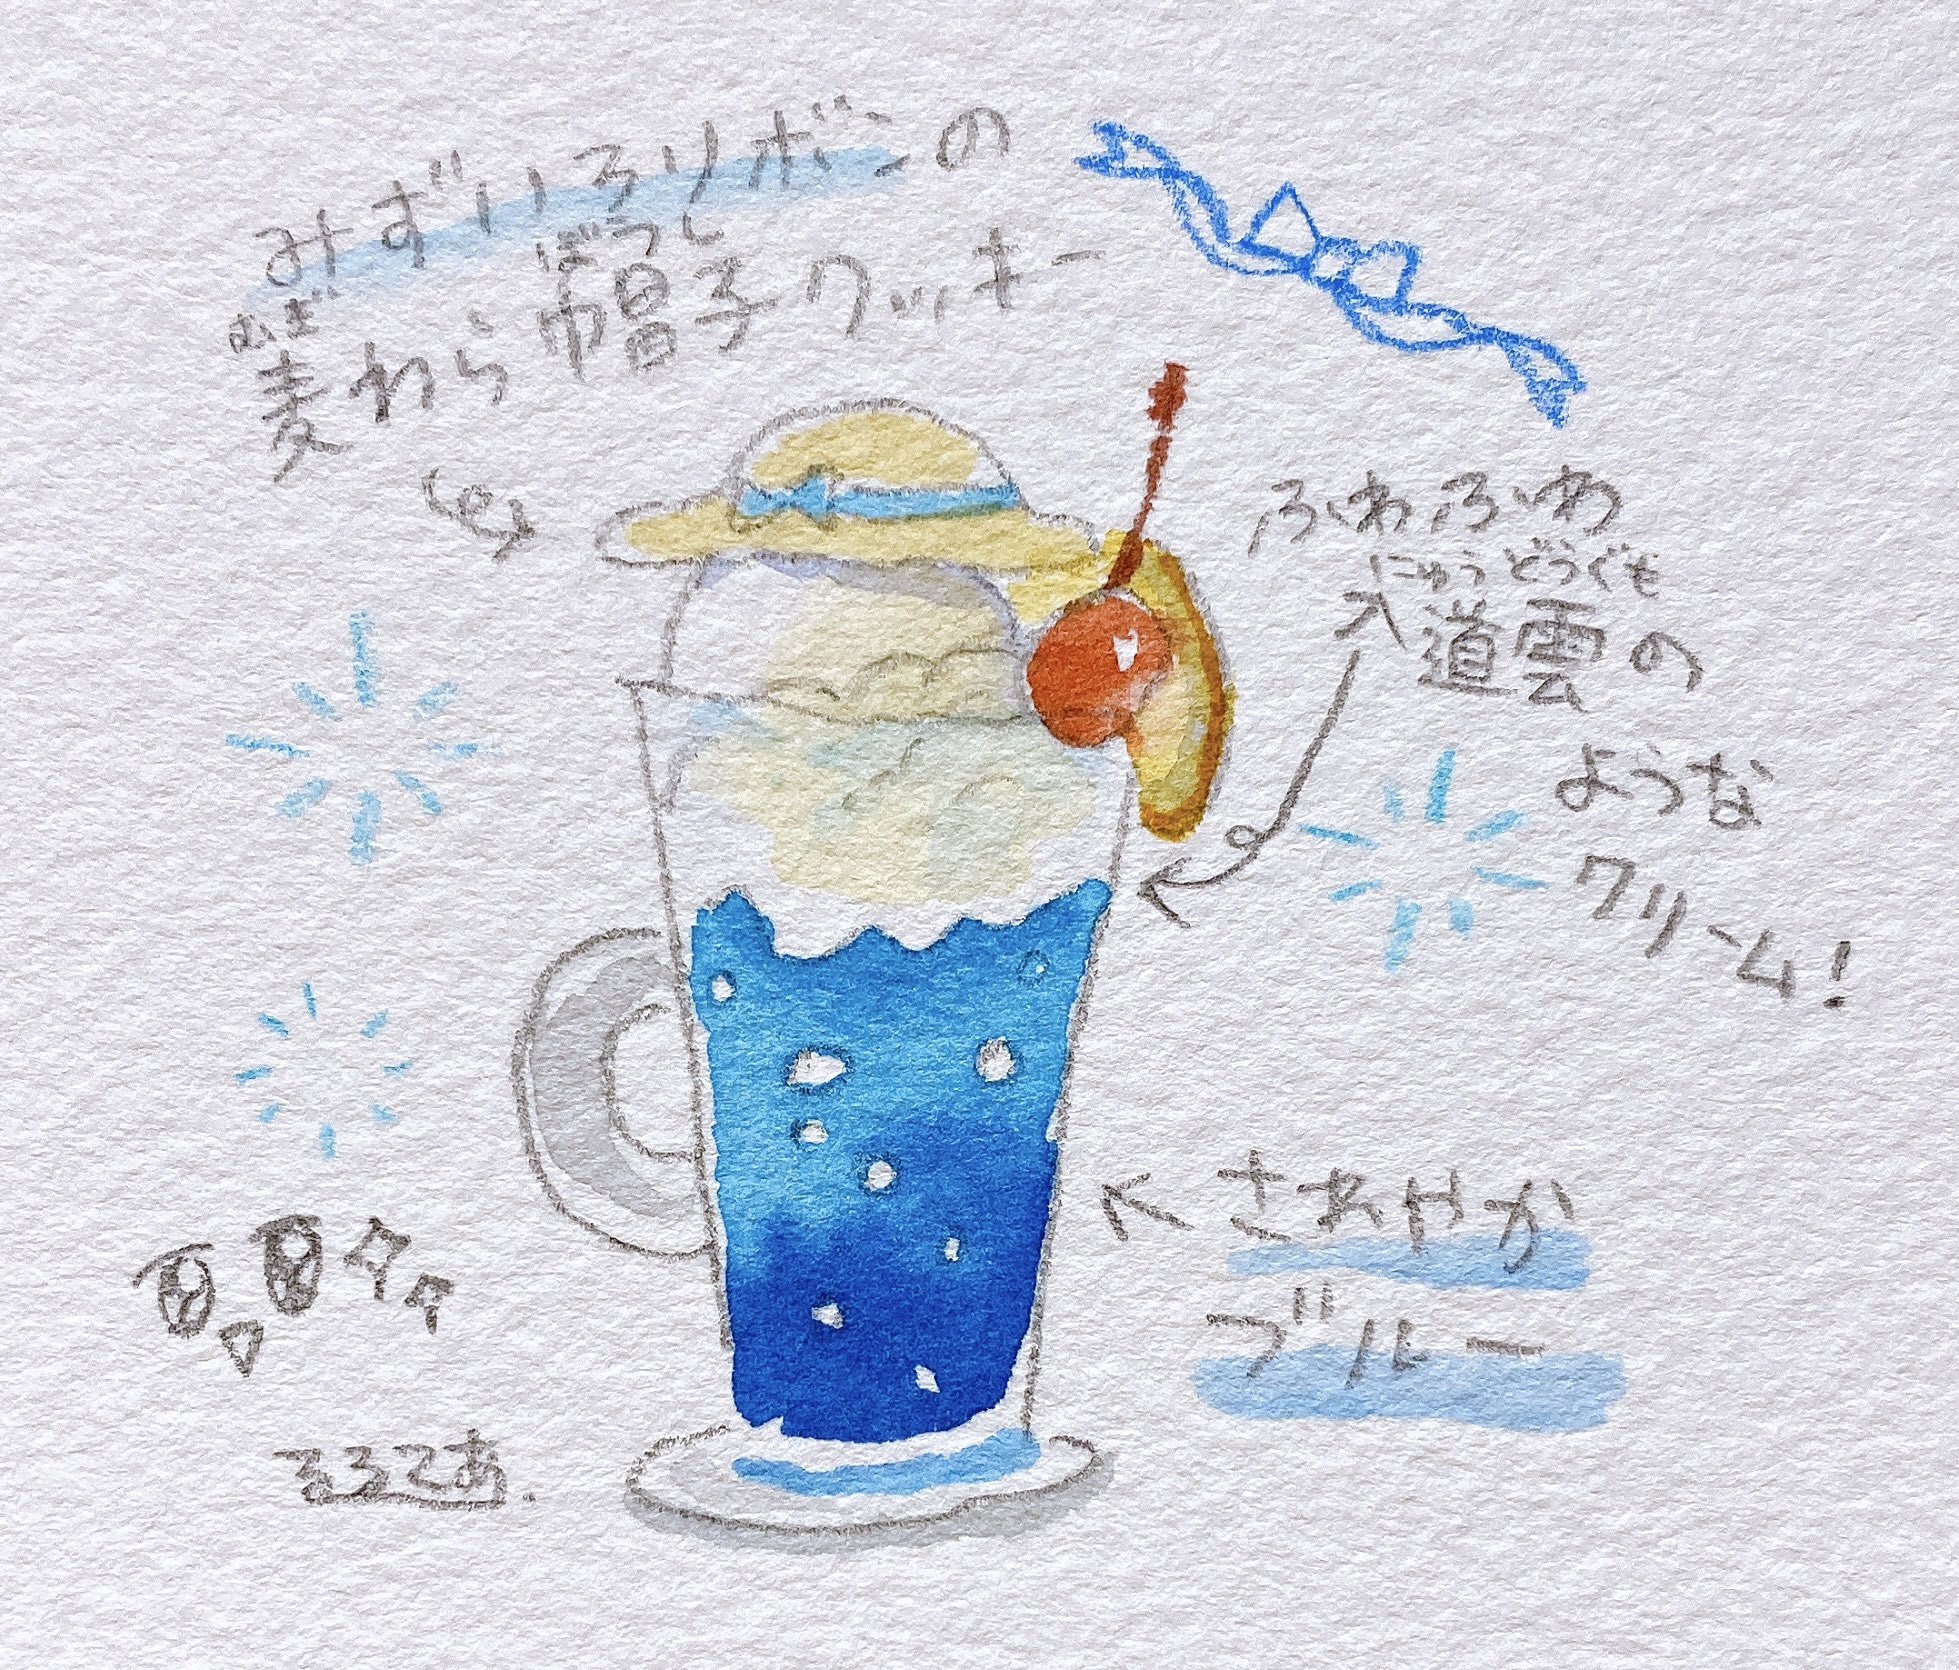 みずいろリボンの
むぎ ぼうし
麦わら帽子クッキー
ふわふわ
にゅうどうぐも
入道雲の
ような
クリーム!
さわやか
ブルー
るるてあ.